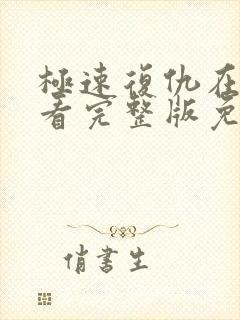 極速復仇在
看完整版免
俏書生